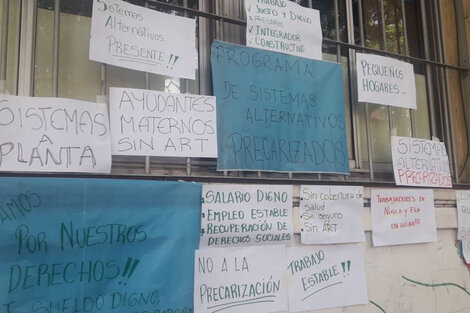 Sistemas
Alternativos
PRESENTE!!
TRABAJO
JUSTO Y DIGNO
INTEGRADOR
CONSTRUCTIVO
PROGRAMA
DE SISTEMAS
ALTERNATIVOS
PRECARIZADOS
PEQUEÑOS
HOGARES...
SISTEMAS
A
PLANTA
AYUDANTES
MATERNOS
SIN ART
SISTEMAS
ALTERNATIV
PRECARIZADOS
AMOS
POR NUESTROS
DERECHOS!!
SUELDO DIGNO,
SALARIO DIGNO
EMPLEO ESTABLE
RECUPERACIÓN DE
DERECHOS SOCIALES
Sin cobertura de
salud
Sin seguro
Sin ART
TRABAJADORES DE
Niñez y Flia
EN LUCHA!!
NO A LA
PRECARIZACIÓN
TRABAJO
ESTABLE!!